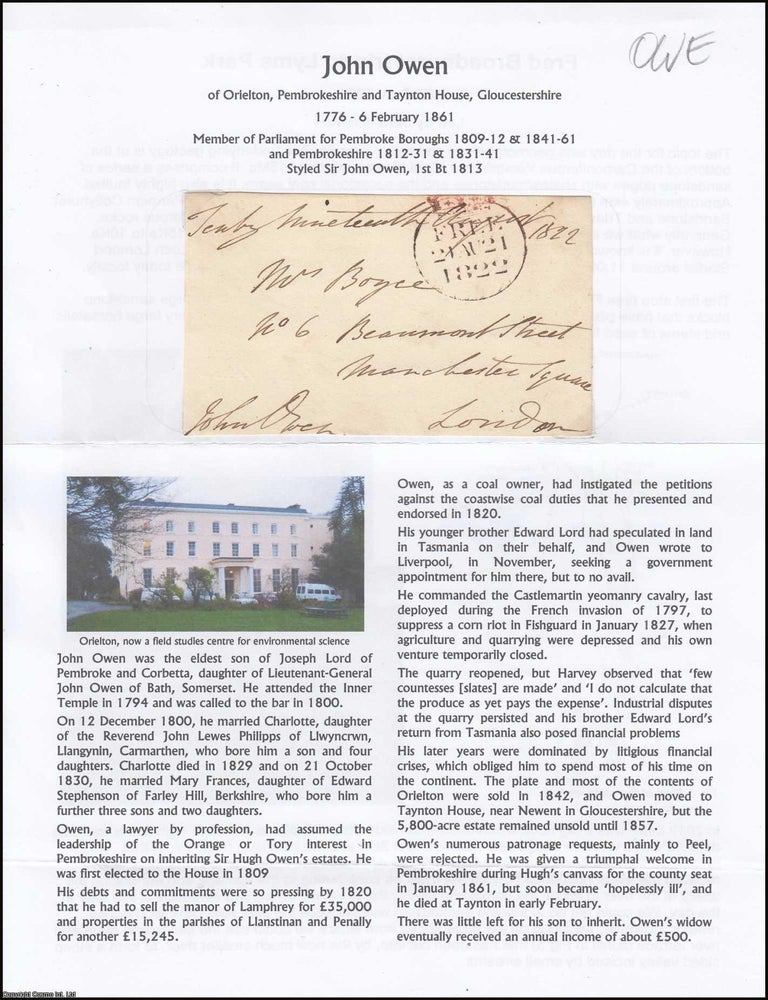 OWE
John Owen
of Orielton, Pembrokeshire and Taynton House, Gloucestershire
1776 - 6 February 1861
Member of Parliament for Pembroke Boroughs 1809-12 & 1841-61
and Pembrokeshire 1812-31 & 1831-41
Styled Sir John Owen, 1st Bt 1813
Tenby Nineteenth August 1822
FREE
21 AU 21
1822
Mrs Boyce
No 6 Beaumont Street
Manchester Square
John Owen London
Orielton, now a field studies centre for environmental science
John Owen was the eldest son of Joseph Lord of
Pembroke and Corbetta, daughter of Lieutenant-General
John Owen of Bath, Somerset. He attended the Inner
Temple in 1794 and was called to the bar in 1800.
On 12 December 1800, he married Charlotte, daughter
of the Reverend John Lewes Philipps of Llwyncrwn,
Llangynin, Carmarthen, who bore him a son and four
daughters. Charlotte died in 1829 and on 21 October
1830, he married Mary Frances, daughter of Edward
Stephenson of Farley Hill, Berkshire, who bore him a
further three sons and two daughters.
Owen, a lawyer by profession, had assumed the
leadership of the Orange or Tory interest in
Pembrokeshire on inheriting Sir Hugh Owen's estates. He
was first elected to the House in 1809
His debts and commitments were so pressing by 1820
that he had to sell the manor of Lamphrey for £35,000
and properties in the parishes of Llanstinan and Penally
for another £15,245.
Owen, as a coal owner, had instigated the petitions
against the coastwise coal duties that he presented and
endorsed in 1820.
His younger brother Edward Lord had speculated in land
in Tasmania on their behalf, and Owen wrote to
Liverpool, in November, seeking a government
appointment for him there, but to no avail.
He commanded the Castlemartin yeomanry cavalry, last
deployed during the French invasion of 1797, to
suppress a corn riot in Fishguard in January 1827, when
agriculture and quarrying were depressed and his own
venture temporarily closed.
The quarry reopened, but Harvey observed that 'few
countesses [slates] are made' and 'I do not calculate that
the produce as yet pays the expense'. Industrial disputes
at the quarry persisted and his brother Edward Lord's
return from Tasmania also posed financial problems
His later years were dominated by litigious financial
crises, which obliged him to spend most of his time on
the continent. The plate and most of the contents of
Orielton were sold in 1842, and Owen moved to
Taynton House, near Newent in Gloucestershire, but the
5,800-acre estate remained unsold until 1857.
Owen's numerous patronage requests, mainly to Peel,
were rejected. He was given a triumphal welcome in
Pembrokeshire during Hugh's canvass for the county seat
in January 1861, but soon became 'hopelessly ill', and
he died at Taynton in early February.
There was little left for his son to inherit. Owen's widow
eventually received an annual income of about £500.
Copyright Cosmo Int. Ltd